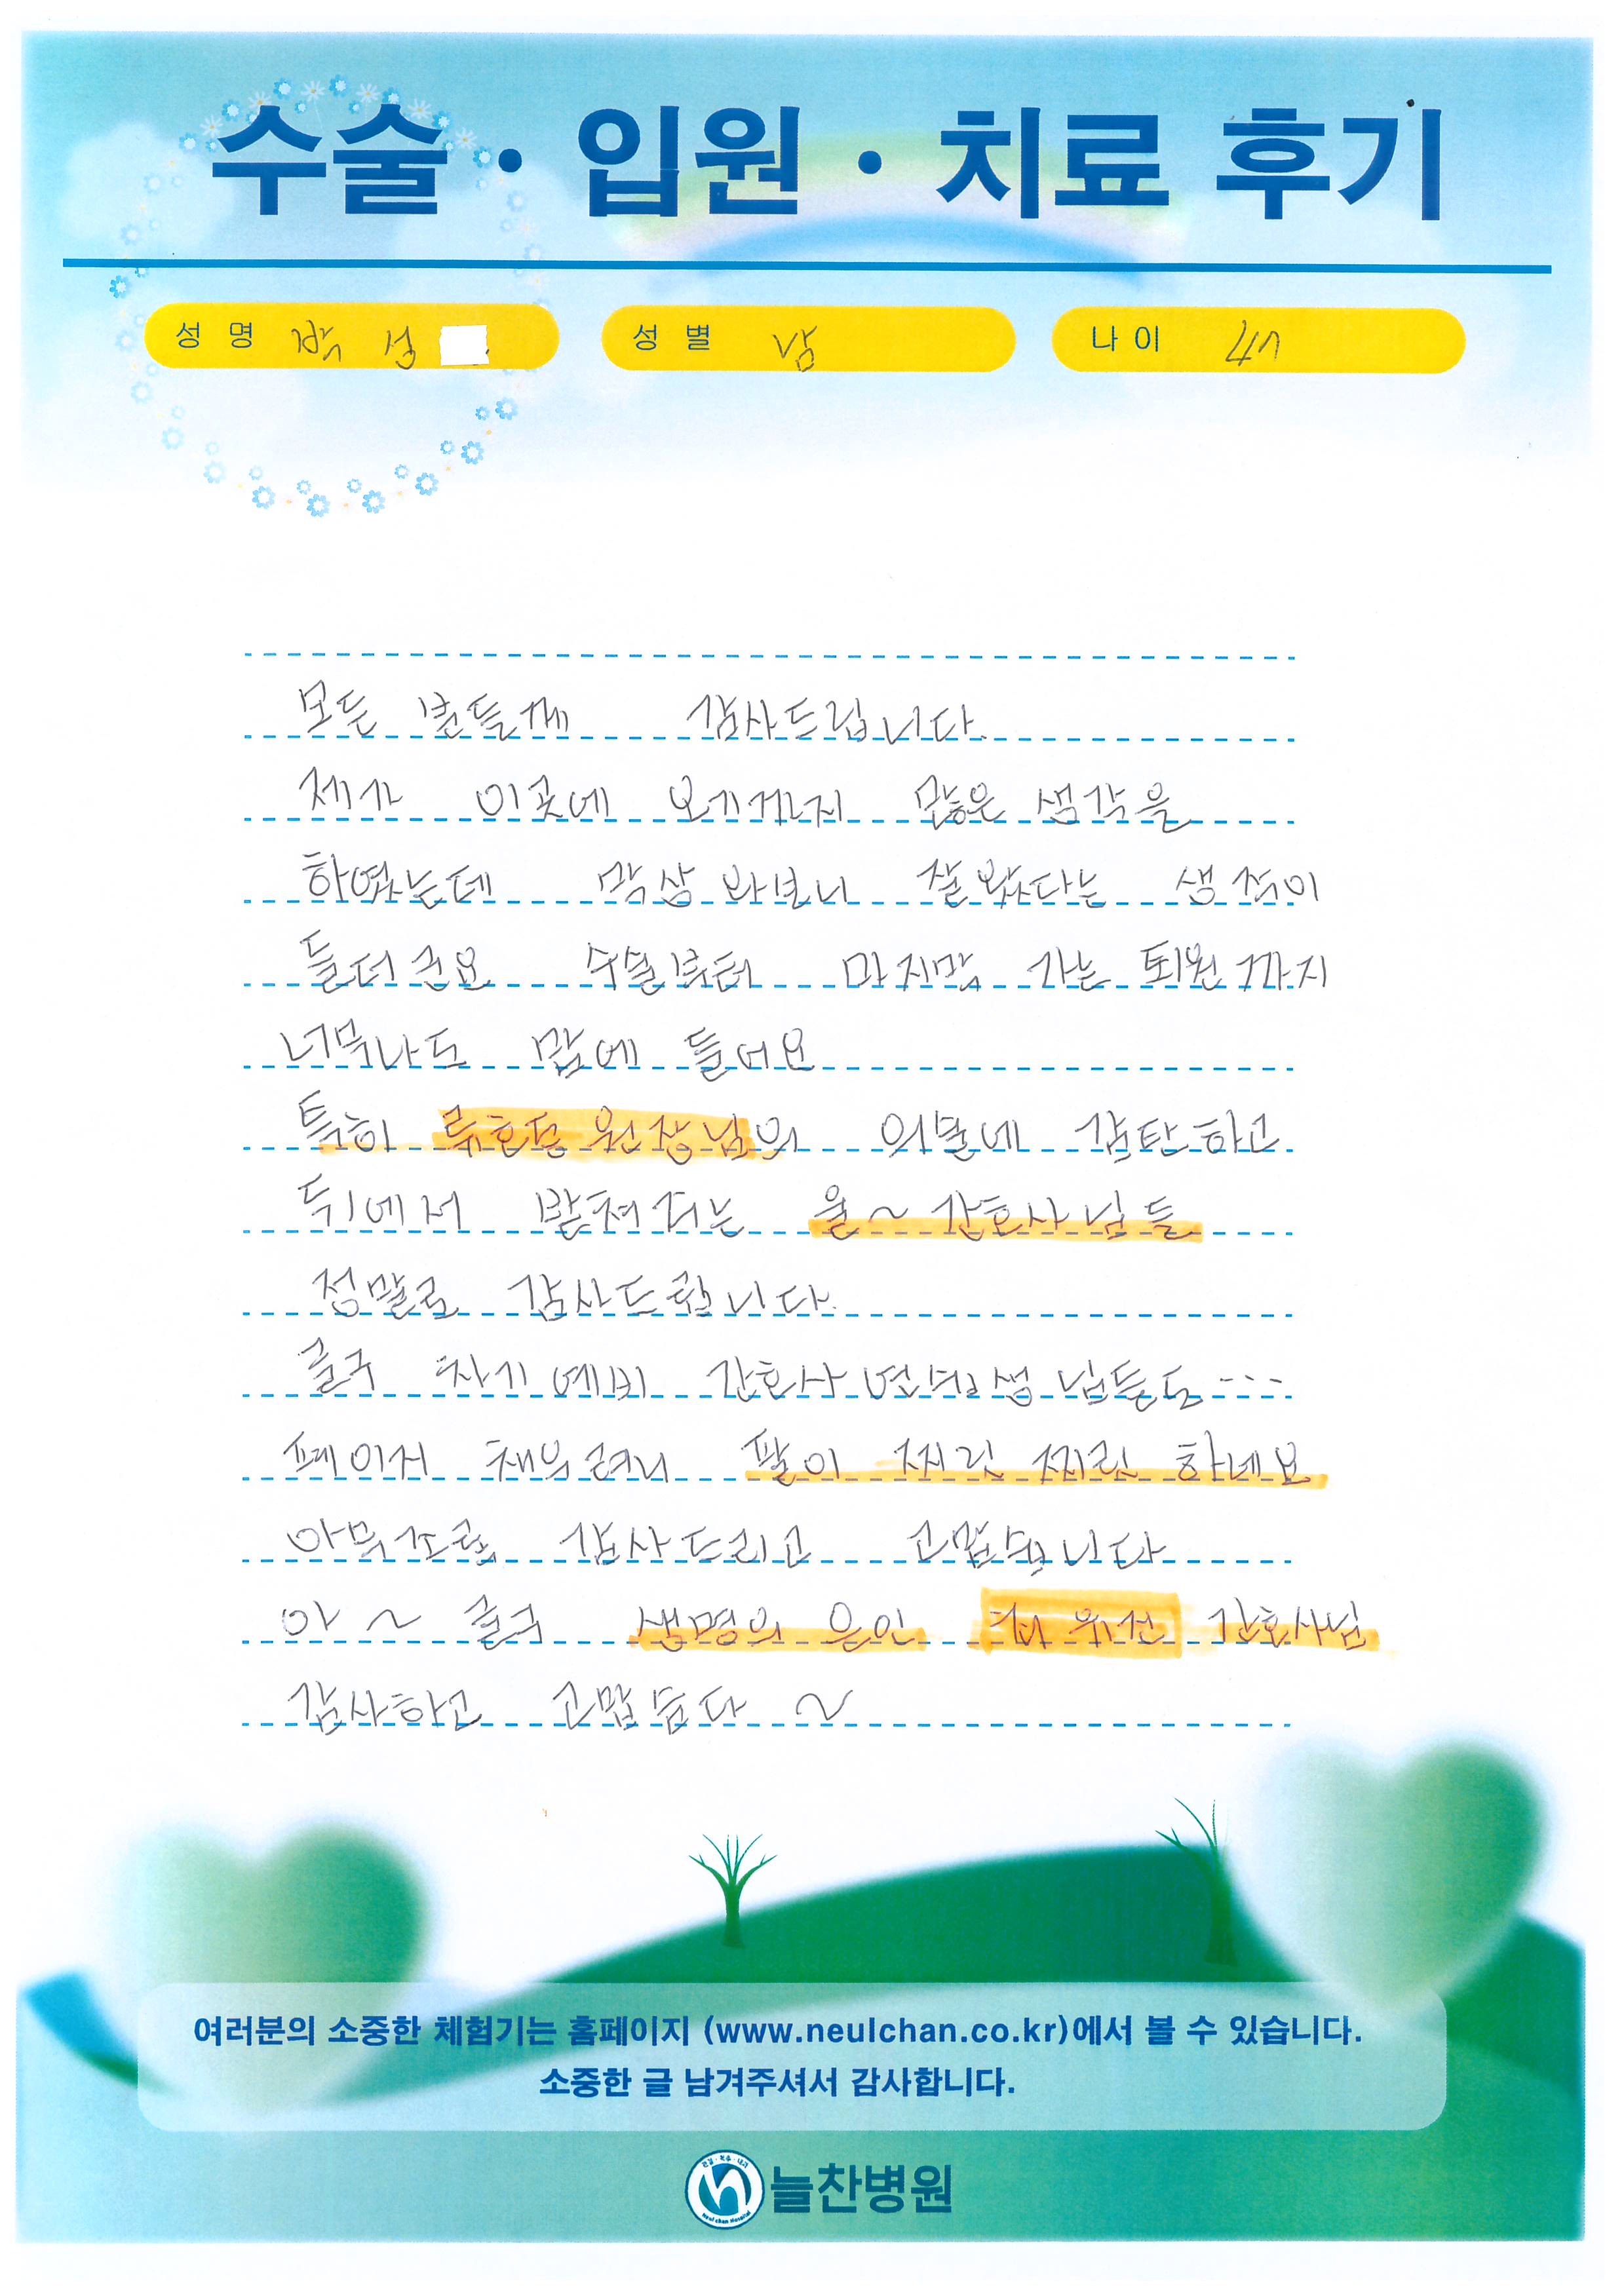 수술·입원·치료 후기
성 명 박 성
성 별 남
나 이 47
모든 분들께 감사드립니다.
제가 이곳에 오기까지 많은 생각을
하였는데 막상 와보니 잘 왔다는 생각이
들더군요 수술부터 마지막 가는 퇴원까지
너무나도 맘에 들어요
특히 류호동 원장님의 의술에 감탄하고
뒤에서 받쳐주는 울~ 간호사님들
정말로 감사드립니다.
글구 차기 예비 간호사 연습생님들도 ---
페이지 채우려니 팔이 찌릿 찌릿 하네요
아무조록 감사드리고 고맙습니다
아~ 글구 생명의 은인 간호사님
감사하고 고맙슴다~
여러분의 소중한 체험기는 홈페이지 (www.neulchan.co.kr)에서 볼 수 있습니다.
소중한 글 남겨주셔서 감사합니다.
늘찬병원